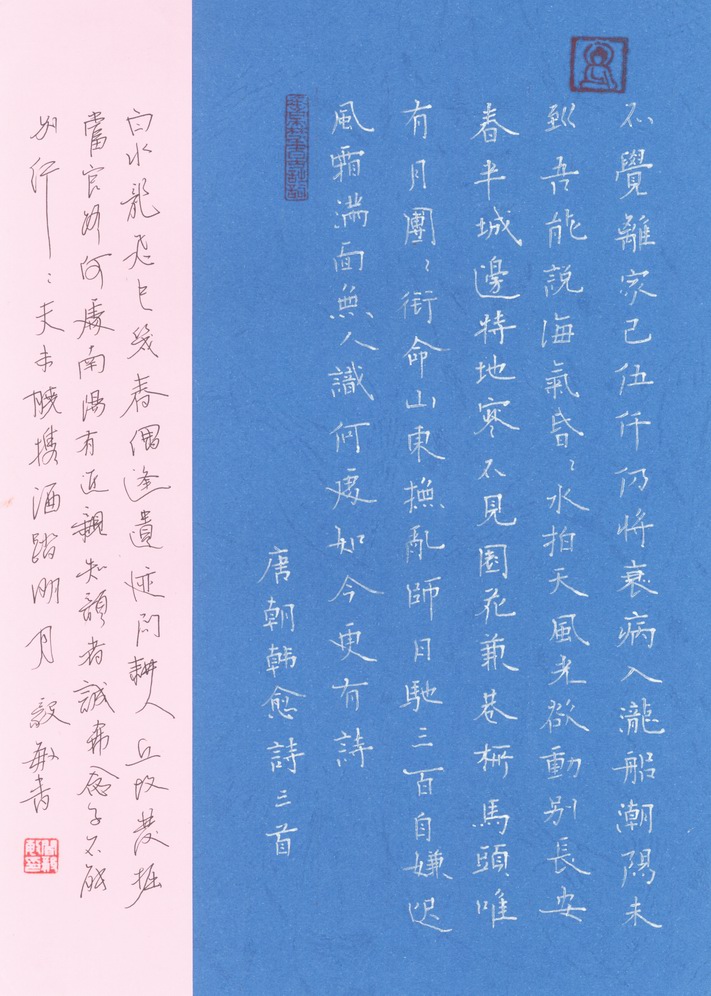 不覺離家已伍仟仍將衰病入瀧船潮陽未
到吾能説海氣昏〻水拍天風光欲動别長安
春半城邊特地寒不見園花兼巷柳馬頭唯
有月團〻銜命山東撫亂師日馳三百自嫌遲
風霜滿面無人識何處如今更有詩
唐朝韓愈詩三首
白水龍飛已幾春偶逢遺迹問耕人丘墳發掘
當官路何處南陽有近親知者誠希念子不能
別行〻天未曉攜酒踏明月 毅敏書